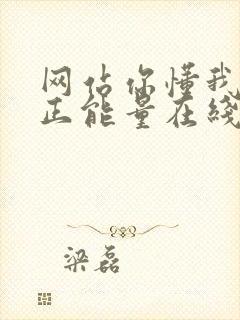 网站你懂我
正能量在线
梁磊